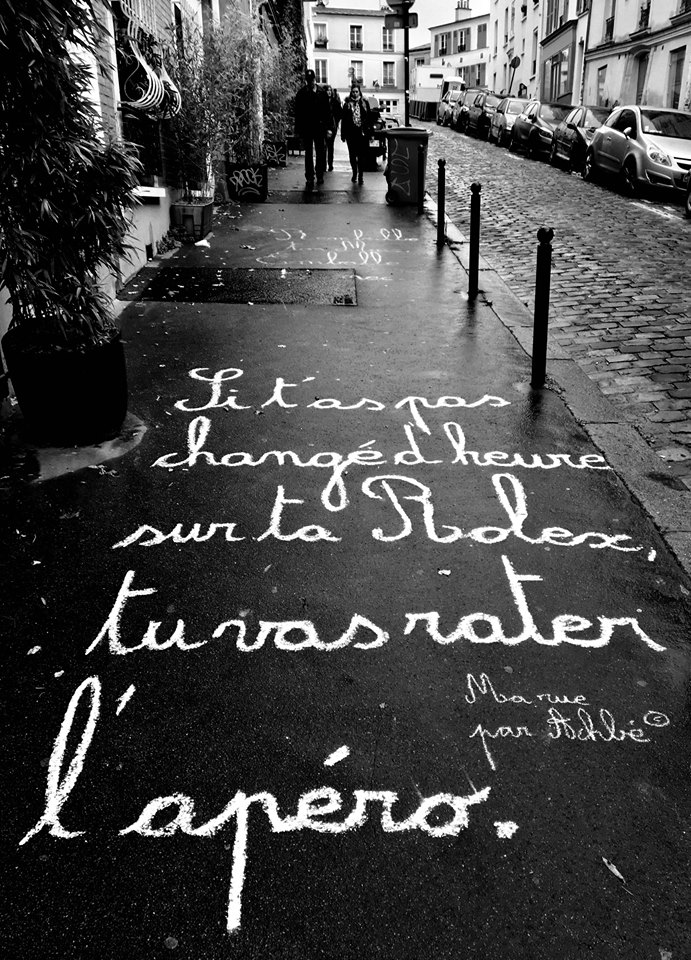 Si t'as pas
changé d'heure
sur ta Rolex,
tu vas rater
l'apéro.
Ma rue
par Achbé ©